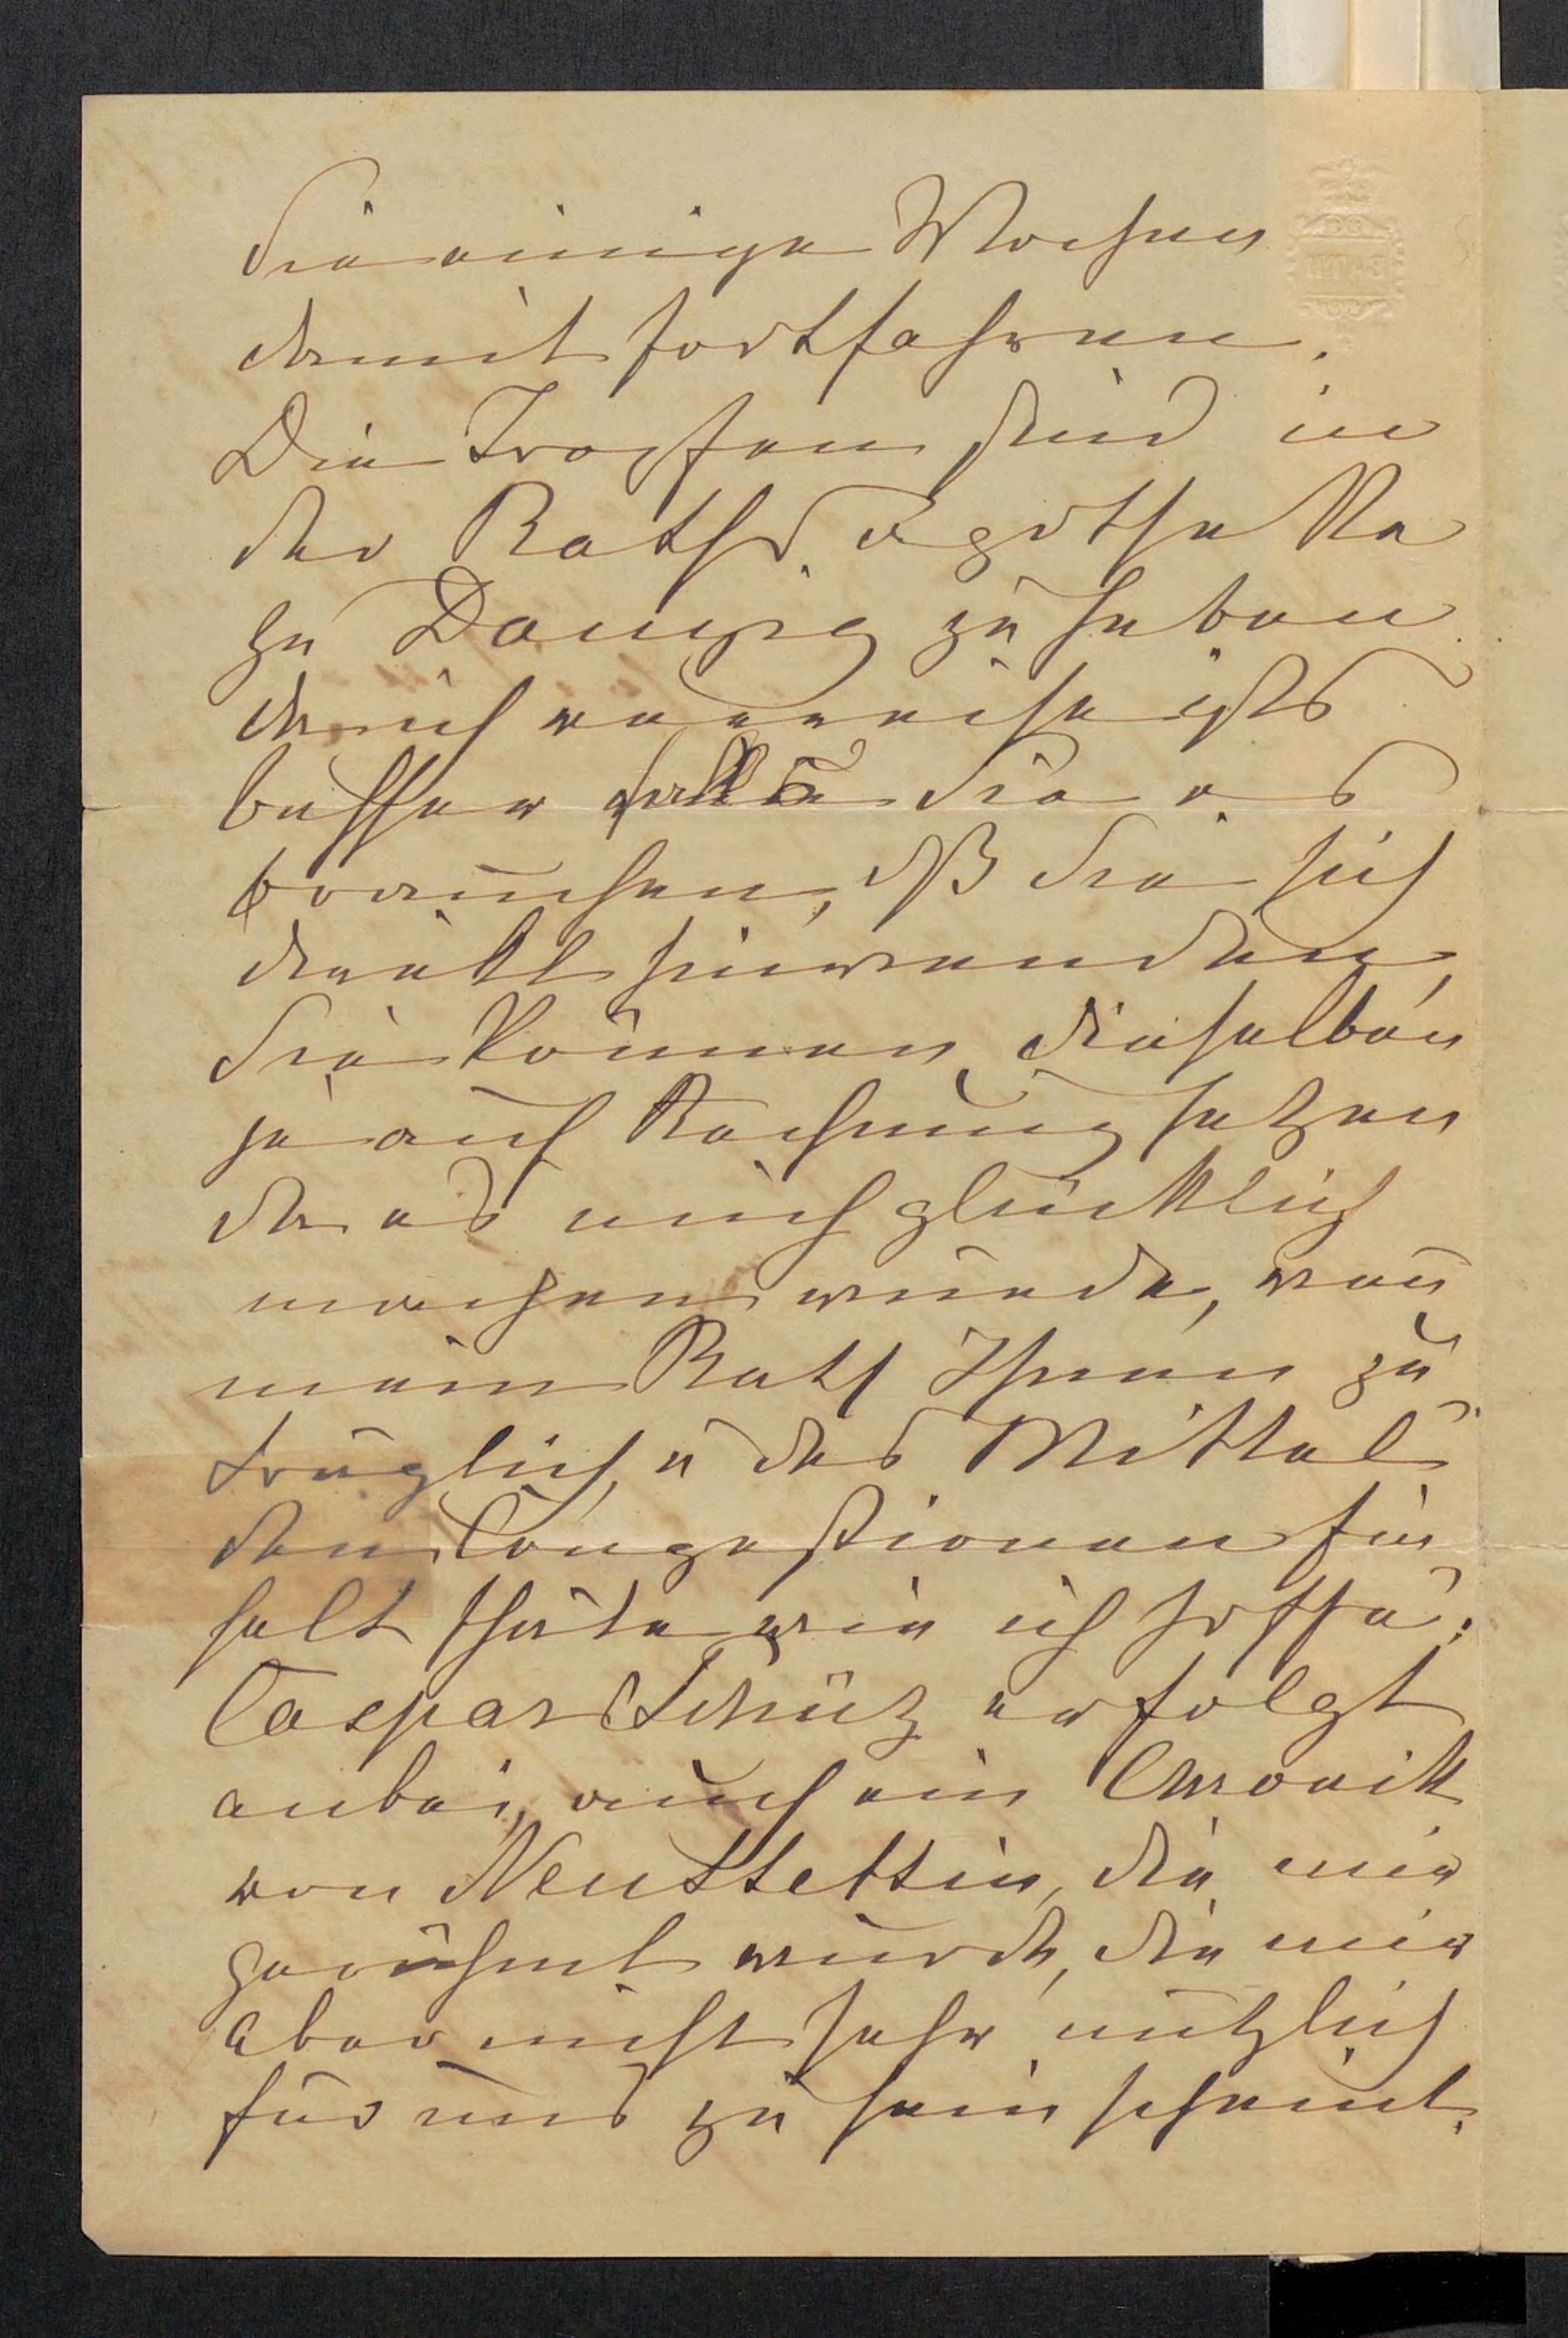 Sie einige Wochen
damit fortfahren.
Die Tropfen sind in
der Raths Apotheke
zu Danzig zu haben
durch
besser falls Sie es
brauchen, daß Sie sich
direkt hinwenden,
Sie können dieselben
ja auf Rechnung setzen
da es mich glücklich
machen würde, wen̄
mein Rath Ihnen zu
träglich, u das Mittel
den Congestionen Ein
halt thäte wie ich hoffe.
Caspar Schütz erfolgt
anbei, auch ein Chronik
von Neustettin, die mir
gerühmt wurde, die mir
aber nicht sehr nützlich
für uns zu sein scheint.